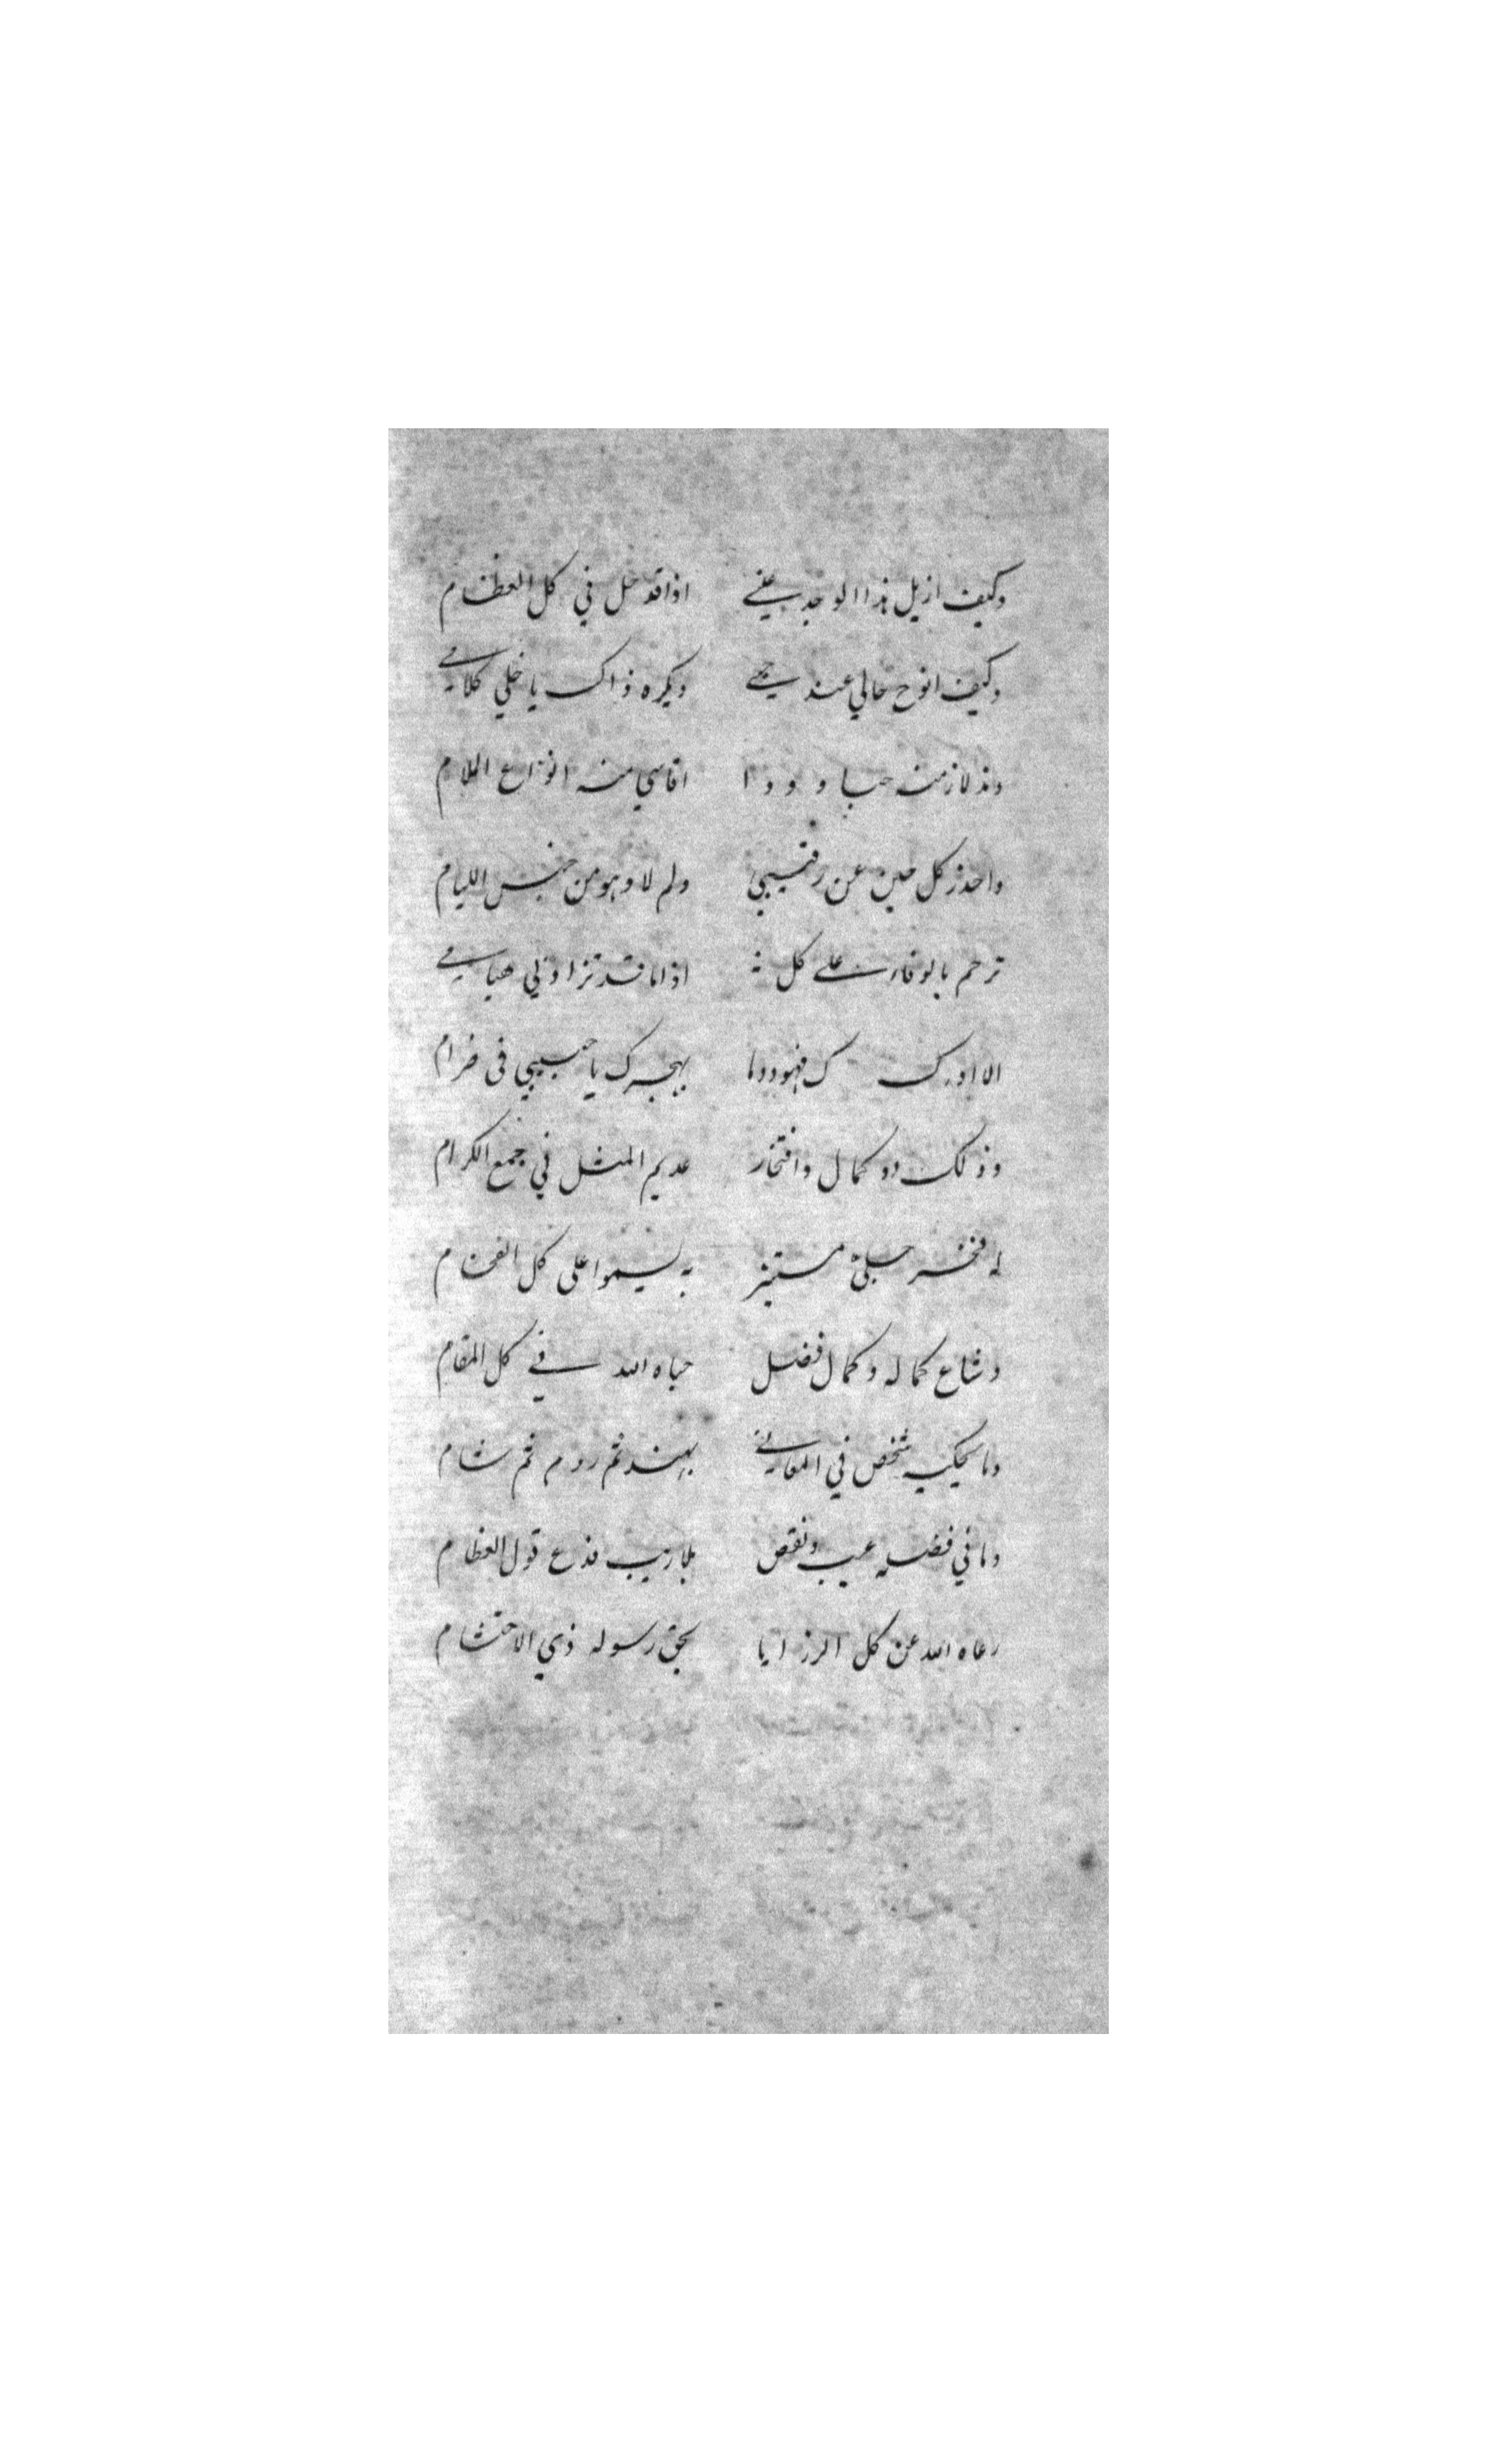 وكيف ازيل هذا الوجد عني اذا قد حل في كل العظام
وكيف انوح حالي عند حبي ويكره ذاك يا خلي كلامي
ومذ لازمت حبا و ودا اقاسي منه انواع الملام
واحذر كل حين عن رقيبي ولم لا وهو من جنس الليام
ترحم بالوفاء على كل اذا ما قد تزاود لي هيامي
الا ادرك فهو دوما بهجرك يا حبيبي في ضرام
وذلك ذو كمال وافتخار عديم المثل في جمع الكرام
له فخر جلي مستنير به يسموا على كل الفخام
وشاع كماله وكمال فضل حباه الله في كل المقام
وما يحكيه شخص في المعاني بهند ثم روم ثم شام
وما في فضله عيب ونقص بلا ريب فدع قول العظام
رعاه الله عن كل الرزايا بحق رسوله ذي الاحتشام